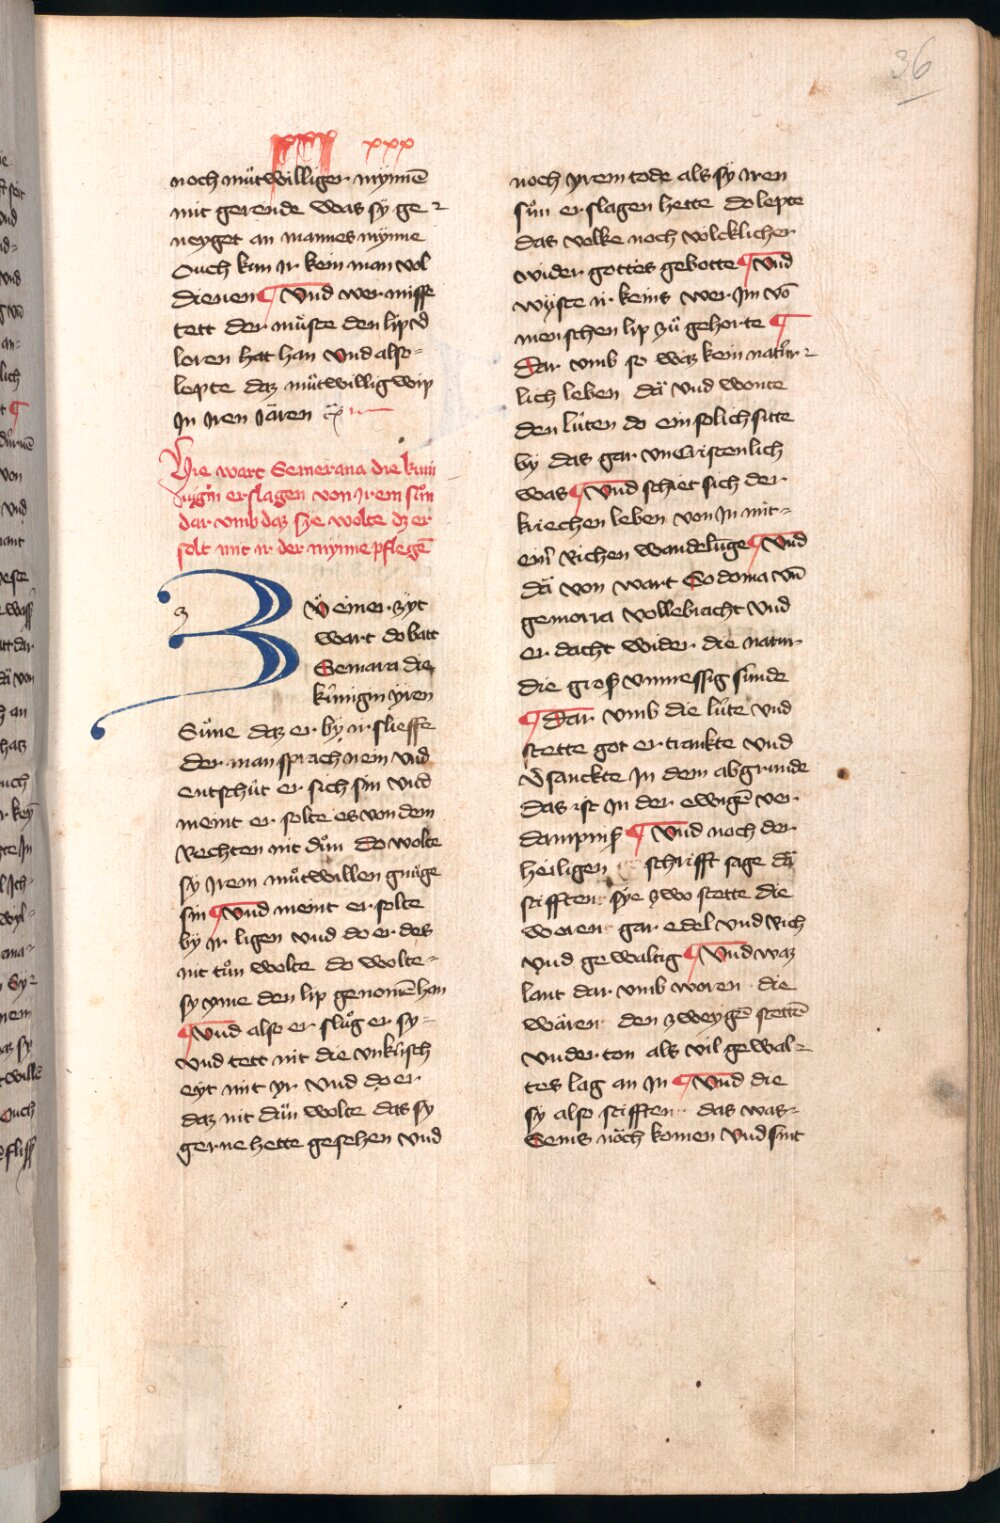 36
xxx
noch mütwilliger mynnē
mit gerende was sÿ ge
neyget an mannes mÿnne
Ouch kan ir kein man vol
dienen ¶ Vnd wer misse
tett der müste den lip v̄
loren hat han vnd also
lepte daz mütwillig wip
In iren iären
Hie wart Semerana die küni
nigin erslagen von irem sůn
dar vmb daz sye wolte dz er
solt mit ir der mynne pflegē
Zů einer zÿt
wart do batt
Semara die
künigin ÿren
Süne daz er bÿ ir slieffe
der man sprach nem vnd
entschüt er sich sin vnd
meint er solte es von dem
Rechten nit důn do wolte
sÿ irem můtwillen gnüge
sin ¶ Vnd meint er solte
bÿ ir ligen vnd do er des
nit tůn wolte do wolte
sy yme den lip genomē han
¶ Vnd also er slůg er sy
vnd tett nit die vnküsch
eyt mit yr vnd do er
daz nit dün wolte das sy
gerne hette gesehen vnd
noch yrem tode als sÿ iren
sůn erslagen hette do lepte
das volke noch volcklicher
wider gottes gebotte ¶ Vnd
wÿste ir keins wer im vō
menschen lip zů gehorte ¶
Dar vmb so waz kein natür
lich leben dä vnd wonte
den lüten do ein solich sitte
bÿ das gar vncristenlich
was ¶ Vnd schiet sich der
kriechen leben von in mit
eim Richen wandelūge ¶ Vnd
dä von wart Sodoma vn̄
gemorra vollebracht vnd
er dacht wider die natur
die groß vnmessig sünde
¶ Dar vmb die lüte vnd
stette got ertrankte vnd
v̄sanckte in dem abgrunde
das ist in der ewigē ver
dampniß ¶ Vnd noch der
heiligen schrifft sage dä
stifften sÿe zwo stette die
woren gar edel vnd Rich
vnd gewaltig ¶ Vnd waz
lant dar vmb woren die
wären den zweygē stettē
vnderton als vil gewal
tes lag an in ¶ Vnd die
sy also stifften das was
Senis nöch komen vnd sint